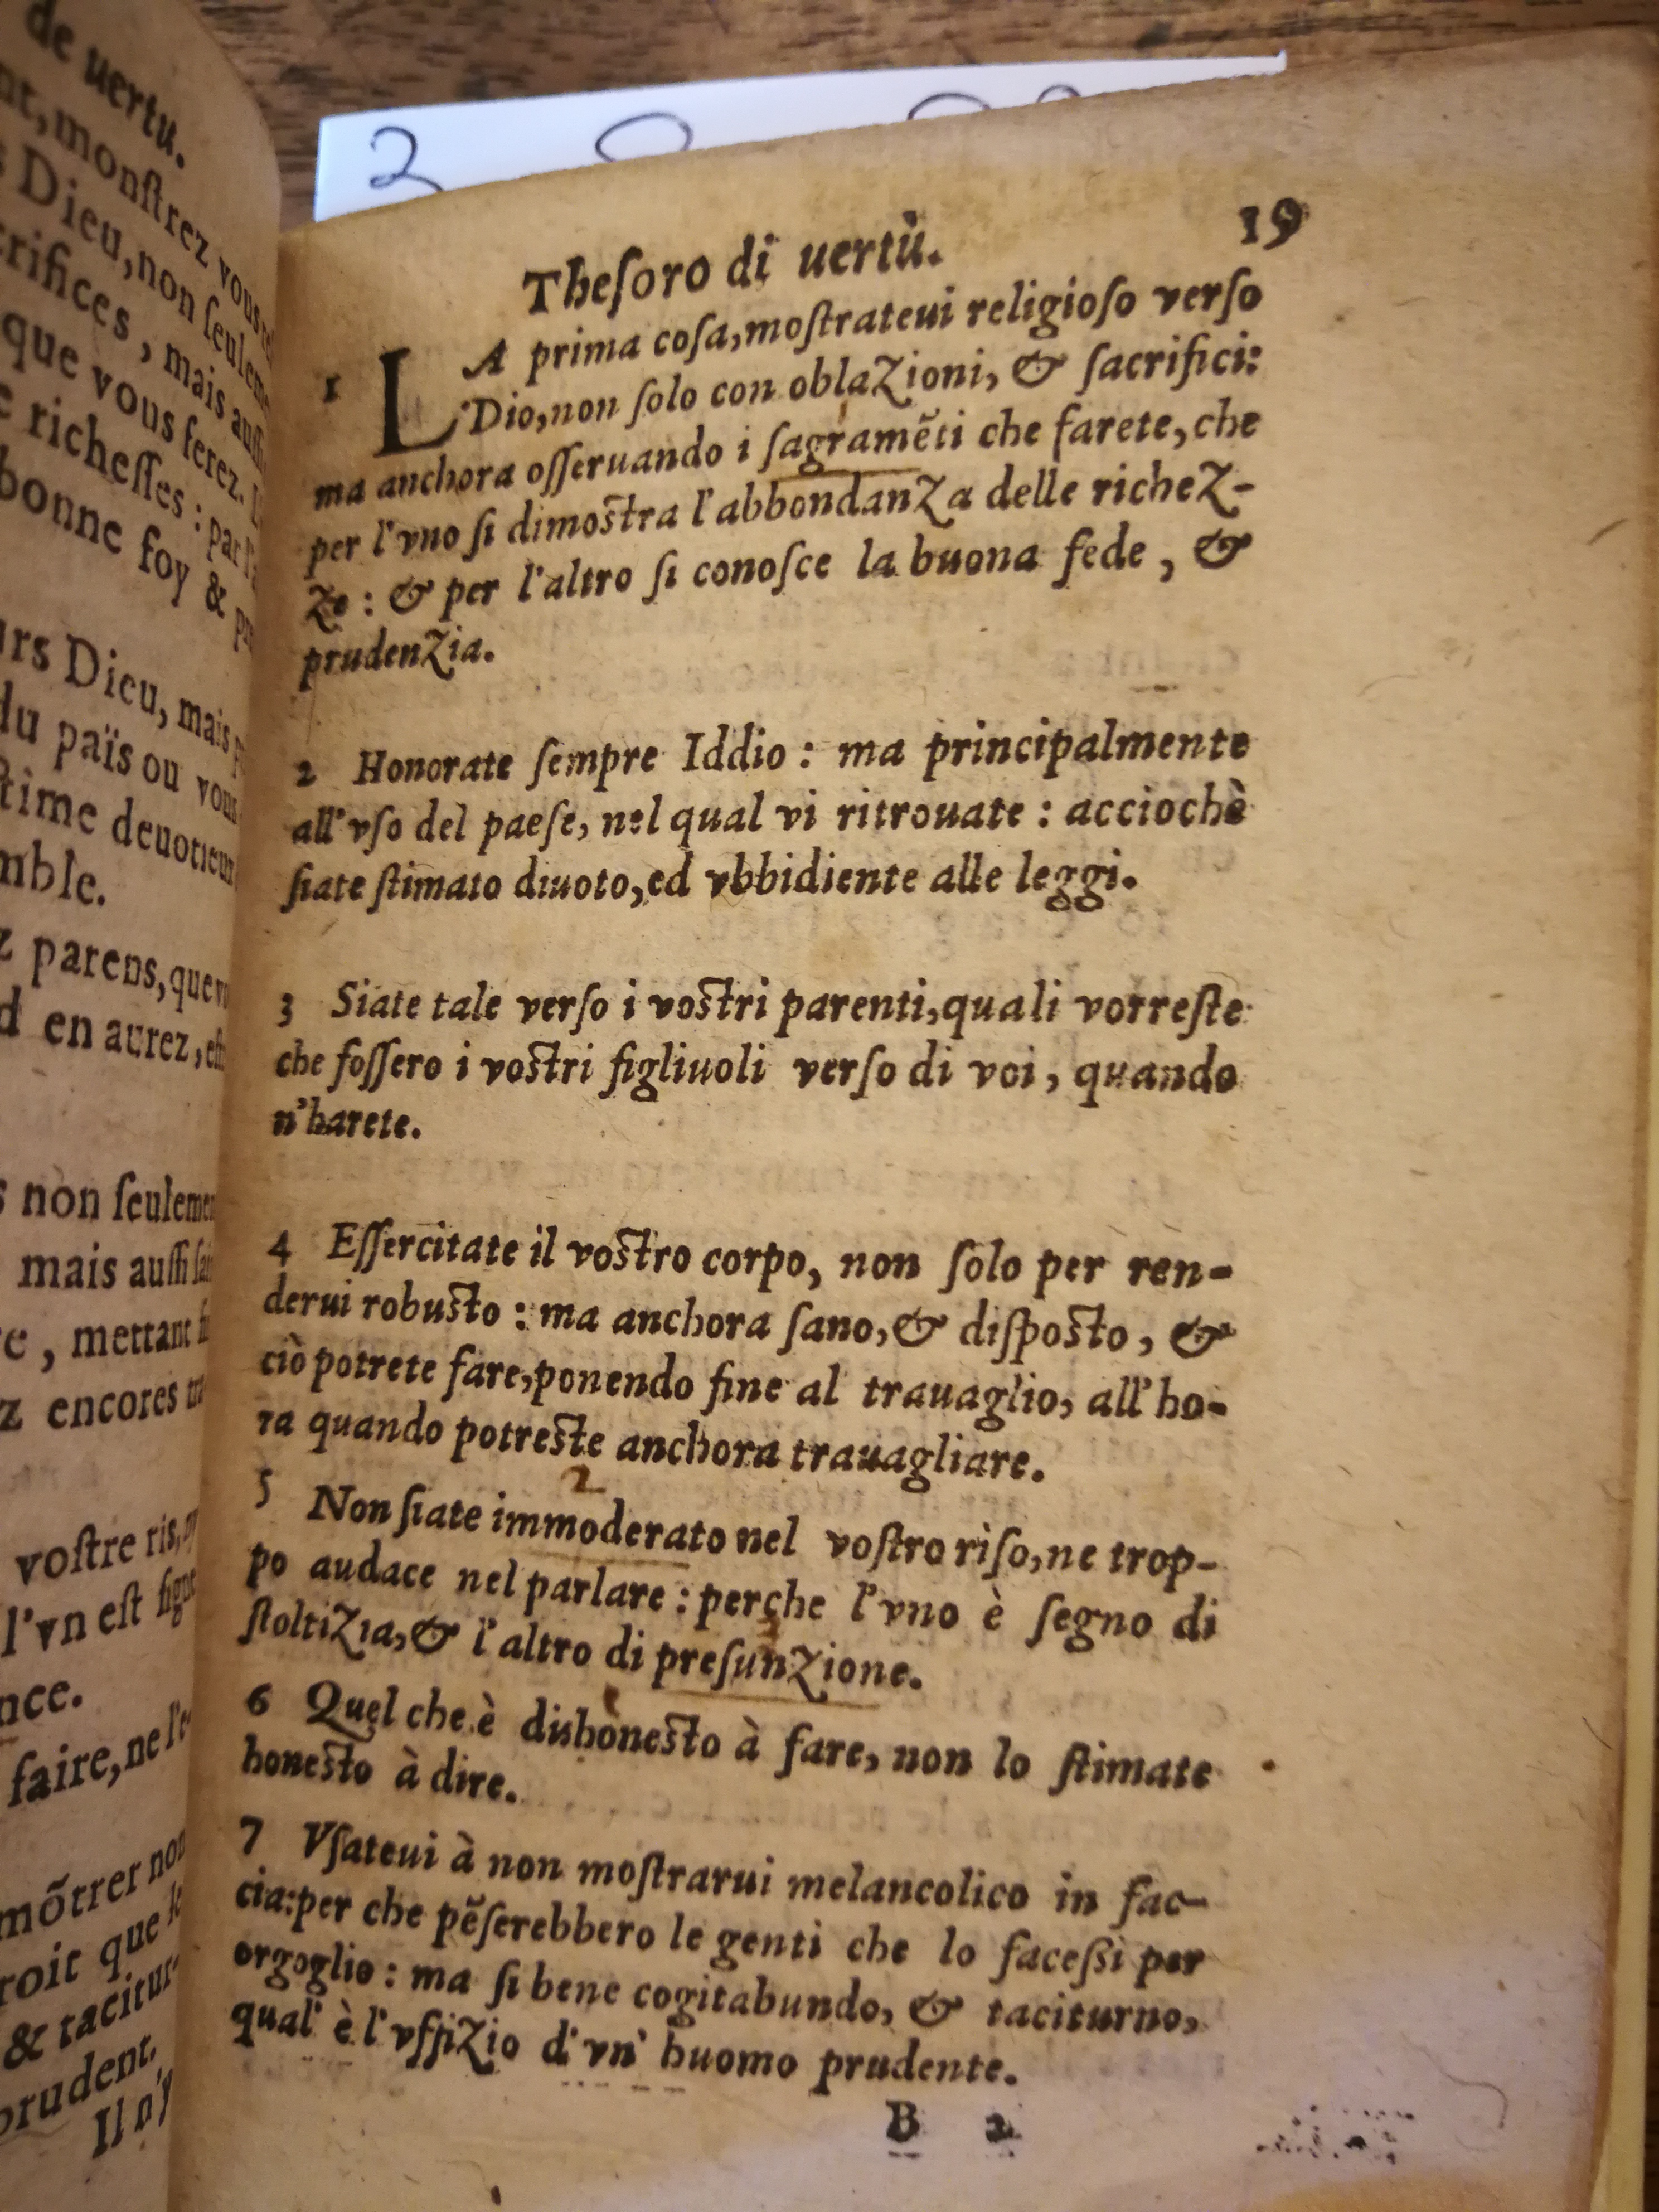 de uertu.
nt, monſtrez vous
s Dieu, non ſeulem
crifices, mais auſſi
que vous ferez.
e richeſſes : par l'
bonne foy & pr
urs Dieu, mais p
du païs ou vous
ſtime deuotieux
mble.
z parens, que v
d en aurez, eſt
s non ſeulemen
mais auſſi ſai
re, mettant fi
z encores tra
voſtre ris,
l'vn eſt ſigne
nce.
faire, ne l'e
mõtrer non
roit que le
& tacitur-
prudent.
Il n'y
2
Theſoro di uertù.
19
1 LA prima coſa, moſtrateui religioſo verſo
Dio, non ſolo con oblazioni, & ſacrifici:
ma anchora oſſeruando i ſagramẽti che farete, che
per l'vno ſi dimoſtra l'abbondanza delle richez-
ze : & per l'altro ſi conoſce la buona fede, &
prudenzia.
2 Honorate ſempre Iddio : ma principalmente
all'vſo del paeſe, nel qual vi ritrouate : acciochè
ſiate ſtimato diuoto, ed vbbidiente alle leggi.
3 Siate tale verſo i voſtri parenti, quali vorreſte
che foſſero i voſtri figliuoli verſo di voi, quando
n'harete.
4 Eſſercitate il voſtro corpo, non ſolo per ren-
derui robuſto : ma anchora ſano, & diſpoſto, &
ciò potrete fare, ponendo fine al trauaglio, all'ho-
ra quando potreſte anchora trauagliare.
2
5 Non ſiate immoderato nel voſtro riſo, ne trop-
po audace nel parlare : perche l'vno è ſegno di
ſtoltizia, & l'altro di preſunzione.
6 Quel che è dishoneſto à fare, non lo ſtimate
honeſto à dire.
7 Vſateui à non moſtrarui melancolico in fac-
cia: per che pẽſerebbero le genti che lo faceßi per
orgoglio : ma ſi bene cogitabundo, & taciturno,
qual' è l'vffizio d'vn' huomo prudente.
B 2